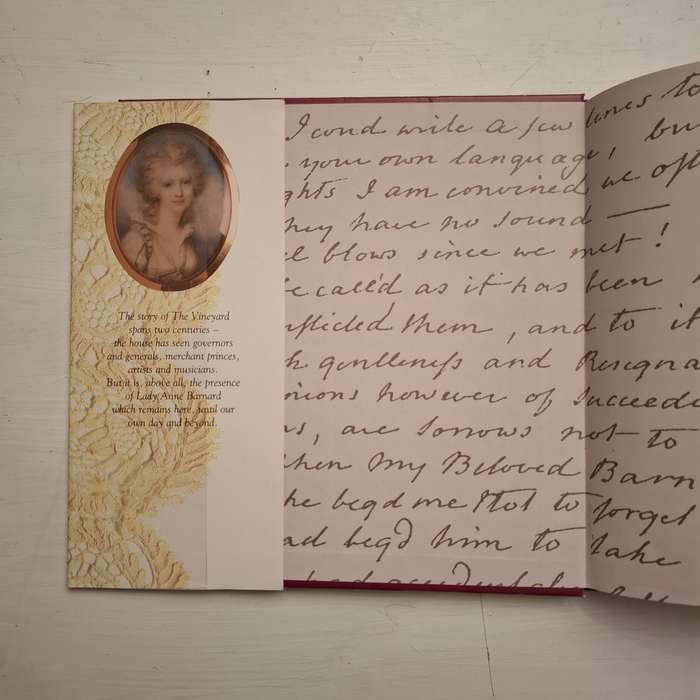 The story of The Vineyard
spans two centuries –
the house has seen governors
and generals, merchant princes,
artists and musicians.
But it is, above all, the presence
of Lady Anne Barnard
which remains here, until our
own day and beyond.
I coud write a few lines to
your own language, bu
ghts I am convinced we oft
they have no sound —
el blows since we met!
recall'd as it has been
nflicted them, and to it
h gentleness and Resigna
nions however of succeede
ns, are sorrows not to
when My Beloved Barn
he beg'd me Not to forget
ad beg'd him to take
had accidental